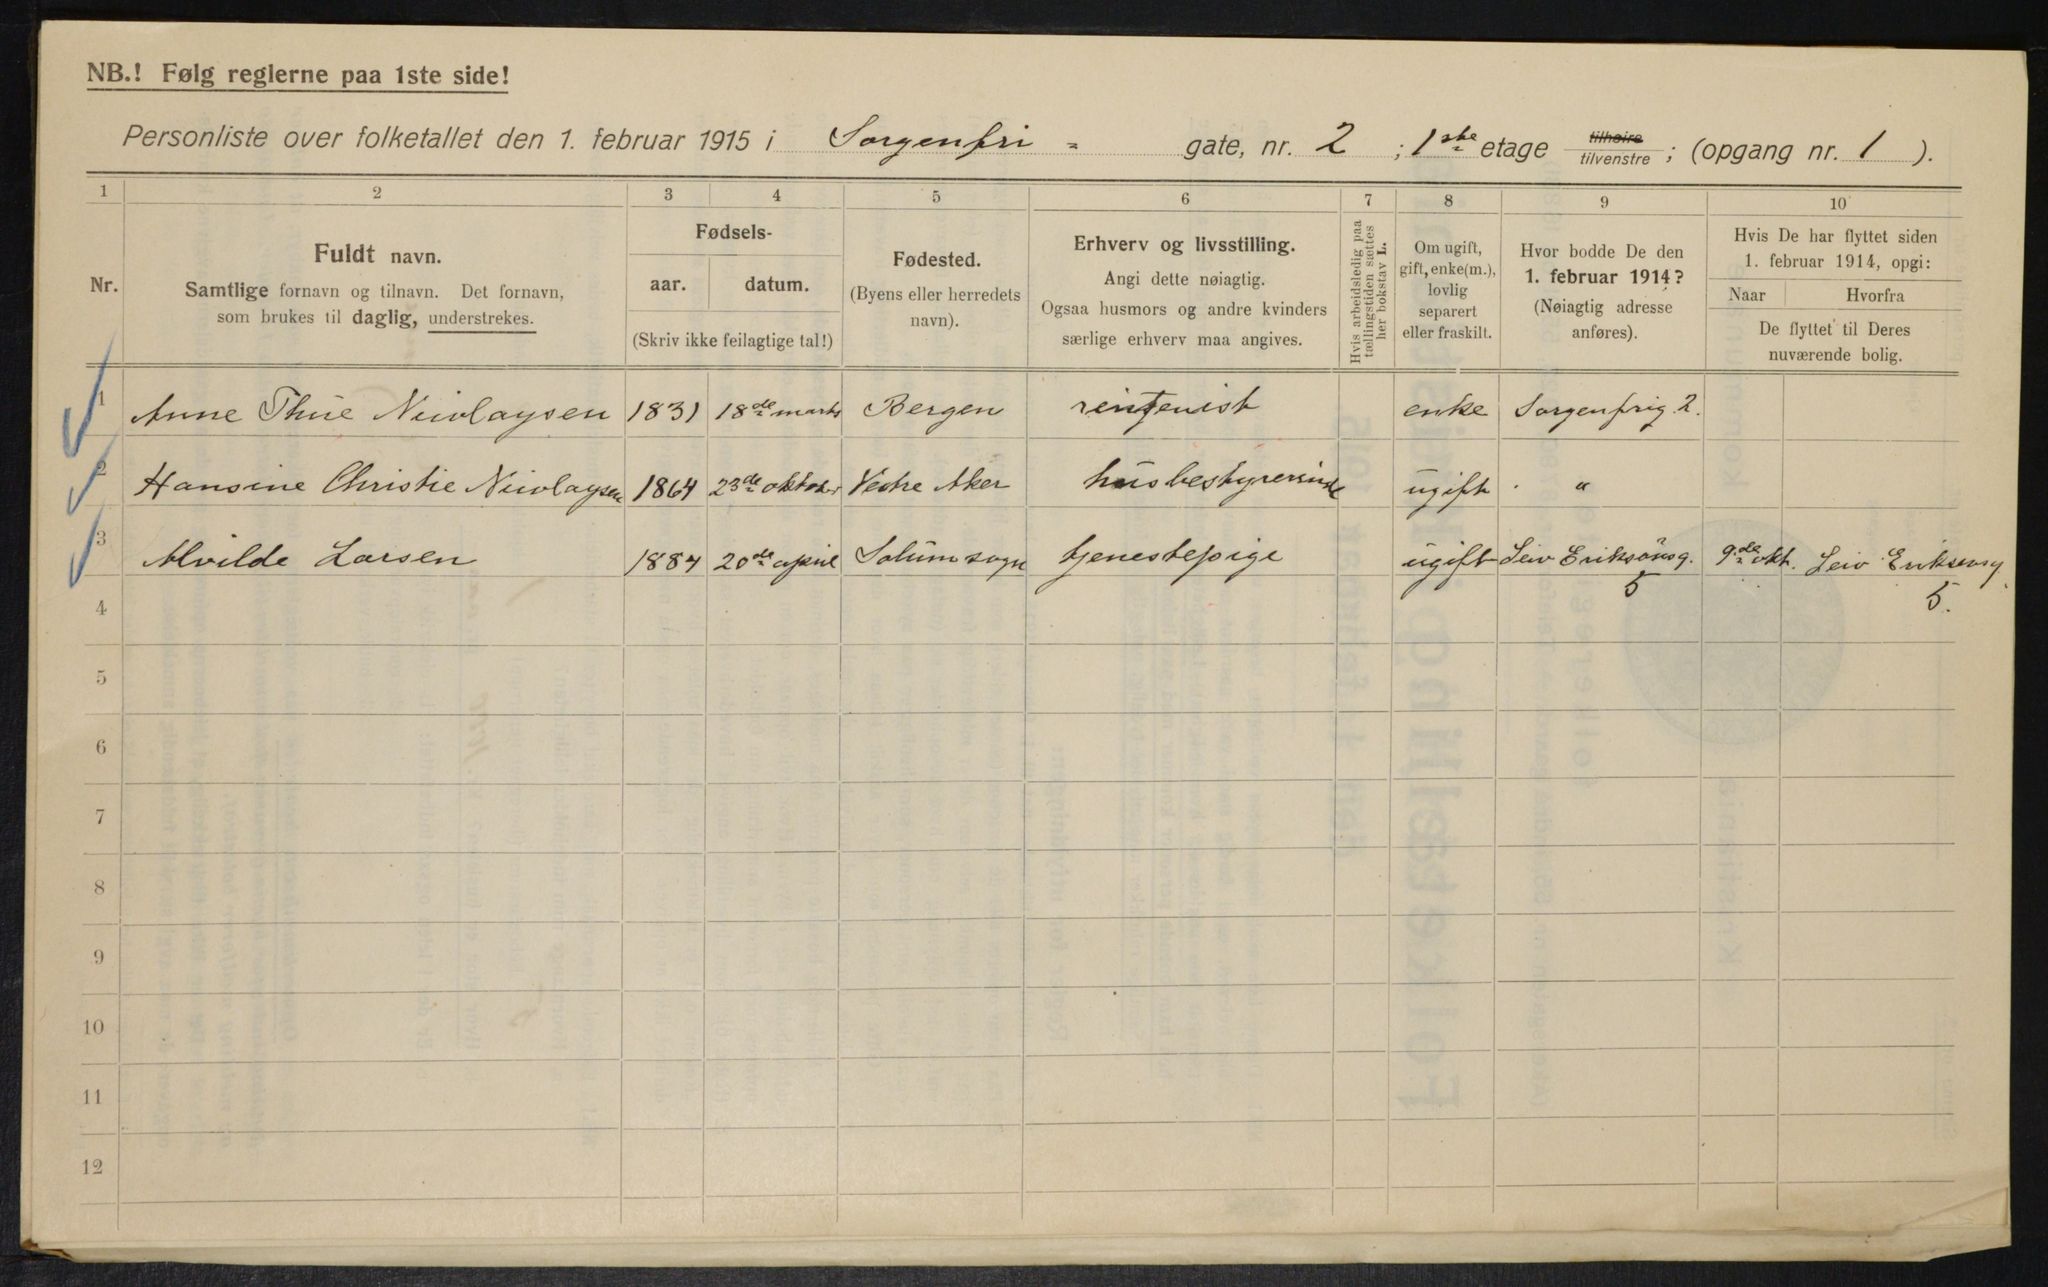 NB.! Følg reglerne paa 1ste side!
Personliste over folketallet den 1. februar 1915 i Sorgenfri - gate, nr. 2 ; 1ste etage tilhøire tilvenstre ; (opgang nr. 1 ).
1 2 3 4 5 6 7 8 9 10
Nr.
Fuldt navn.
Samtlige fornavn og tilnavn. Det fornavn,
som brukes til daglig, understrekes.
Fødsels-
aar. datum.
(Skriv ikke feilagtige tal!)
Fødested.
(Byens eller herredets
navn).
Erhverv og livsstilling.
Angi dette nøiagtig.
Ogsaa husmors og andre kvinders
særlige erhverv maa angives.
Hvis arbeidsledig paa
tællingstiden sættes
her bokstav L.
Om ugift,
gift, enke(m.),
lovlig
separert
eller fraskilt.
Hvor bodde De den
1. februar 1914?
(Nøiagtig adresse
anføres).
Hvis De har flyttet siden
1. februar 1914, opgi:
Naar Hvorfra
De flyttet til Deres
nuværende bolig.
1 Anne Thue Nicolaysen 1831 18de marts Bergen rentenist enke Sorgenfrig 2.
2 Hansine Christie Nicolaysen 1864 23de oktober Vestre Aker husbestyrerinde ugift " "
3 Alvilde Larsen 1884 20de april Solum sogn tjenestepige ugift Leiv Eriksönsg. 9de okt. Leiv Eriksensg.
5 5.
4
5
6
7
8
9
10
11
12